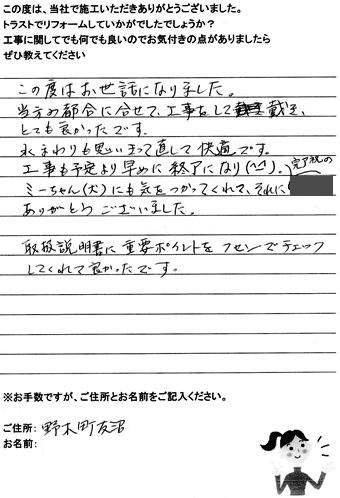 この度は、当社で施工いただきありがとうございました。
トラストでリフォームしていかがでしたでしょうか？
工事に関してでも何でも良いのでお気付きの点がありましたら
ぜひ教えてください
この度はお世話になりました。
当方の都合に合せて、工事をして戴き、
とても良かったです。
水まわりも思いきって直して快適です。
工事も予定より早めに終了になり(^^)。完了祝の
ミーちゃん(犬)にも気をつかってくれて、それに
ありがとうございました。
取扱説明書に重要ポイントをフセンでチェック
してくれて良かったです。
※お手数ですが、ご住所とお名前をご記入ください。
ご住所: 野木町友沼
お名前: